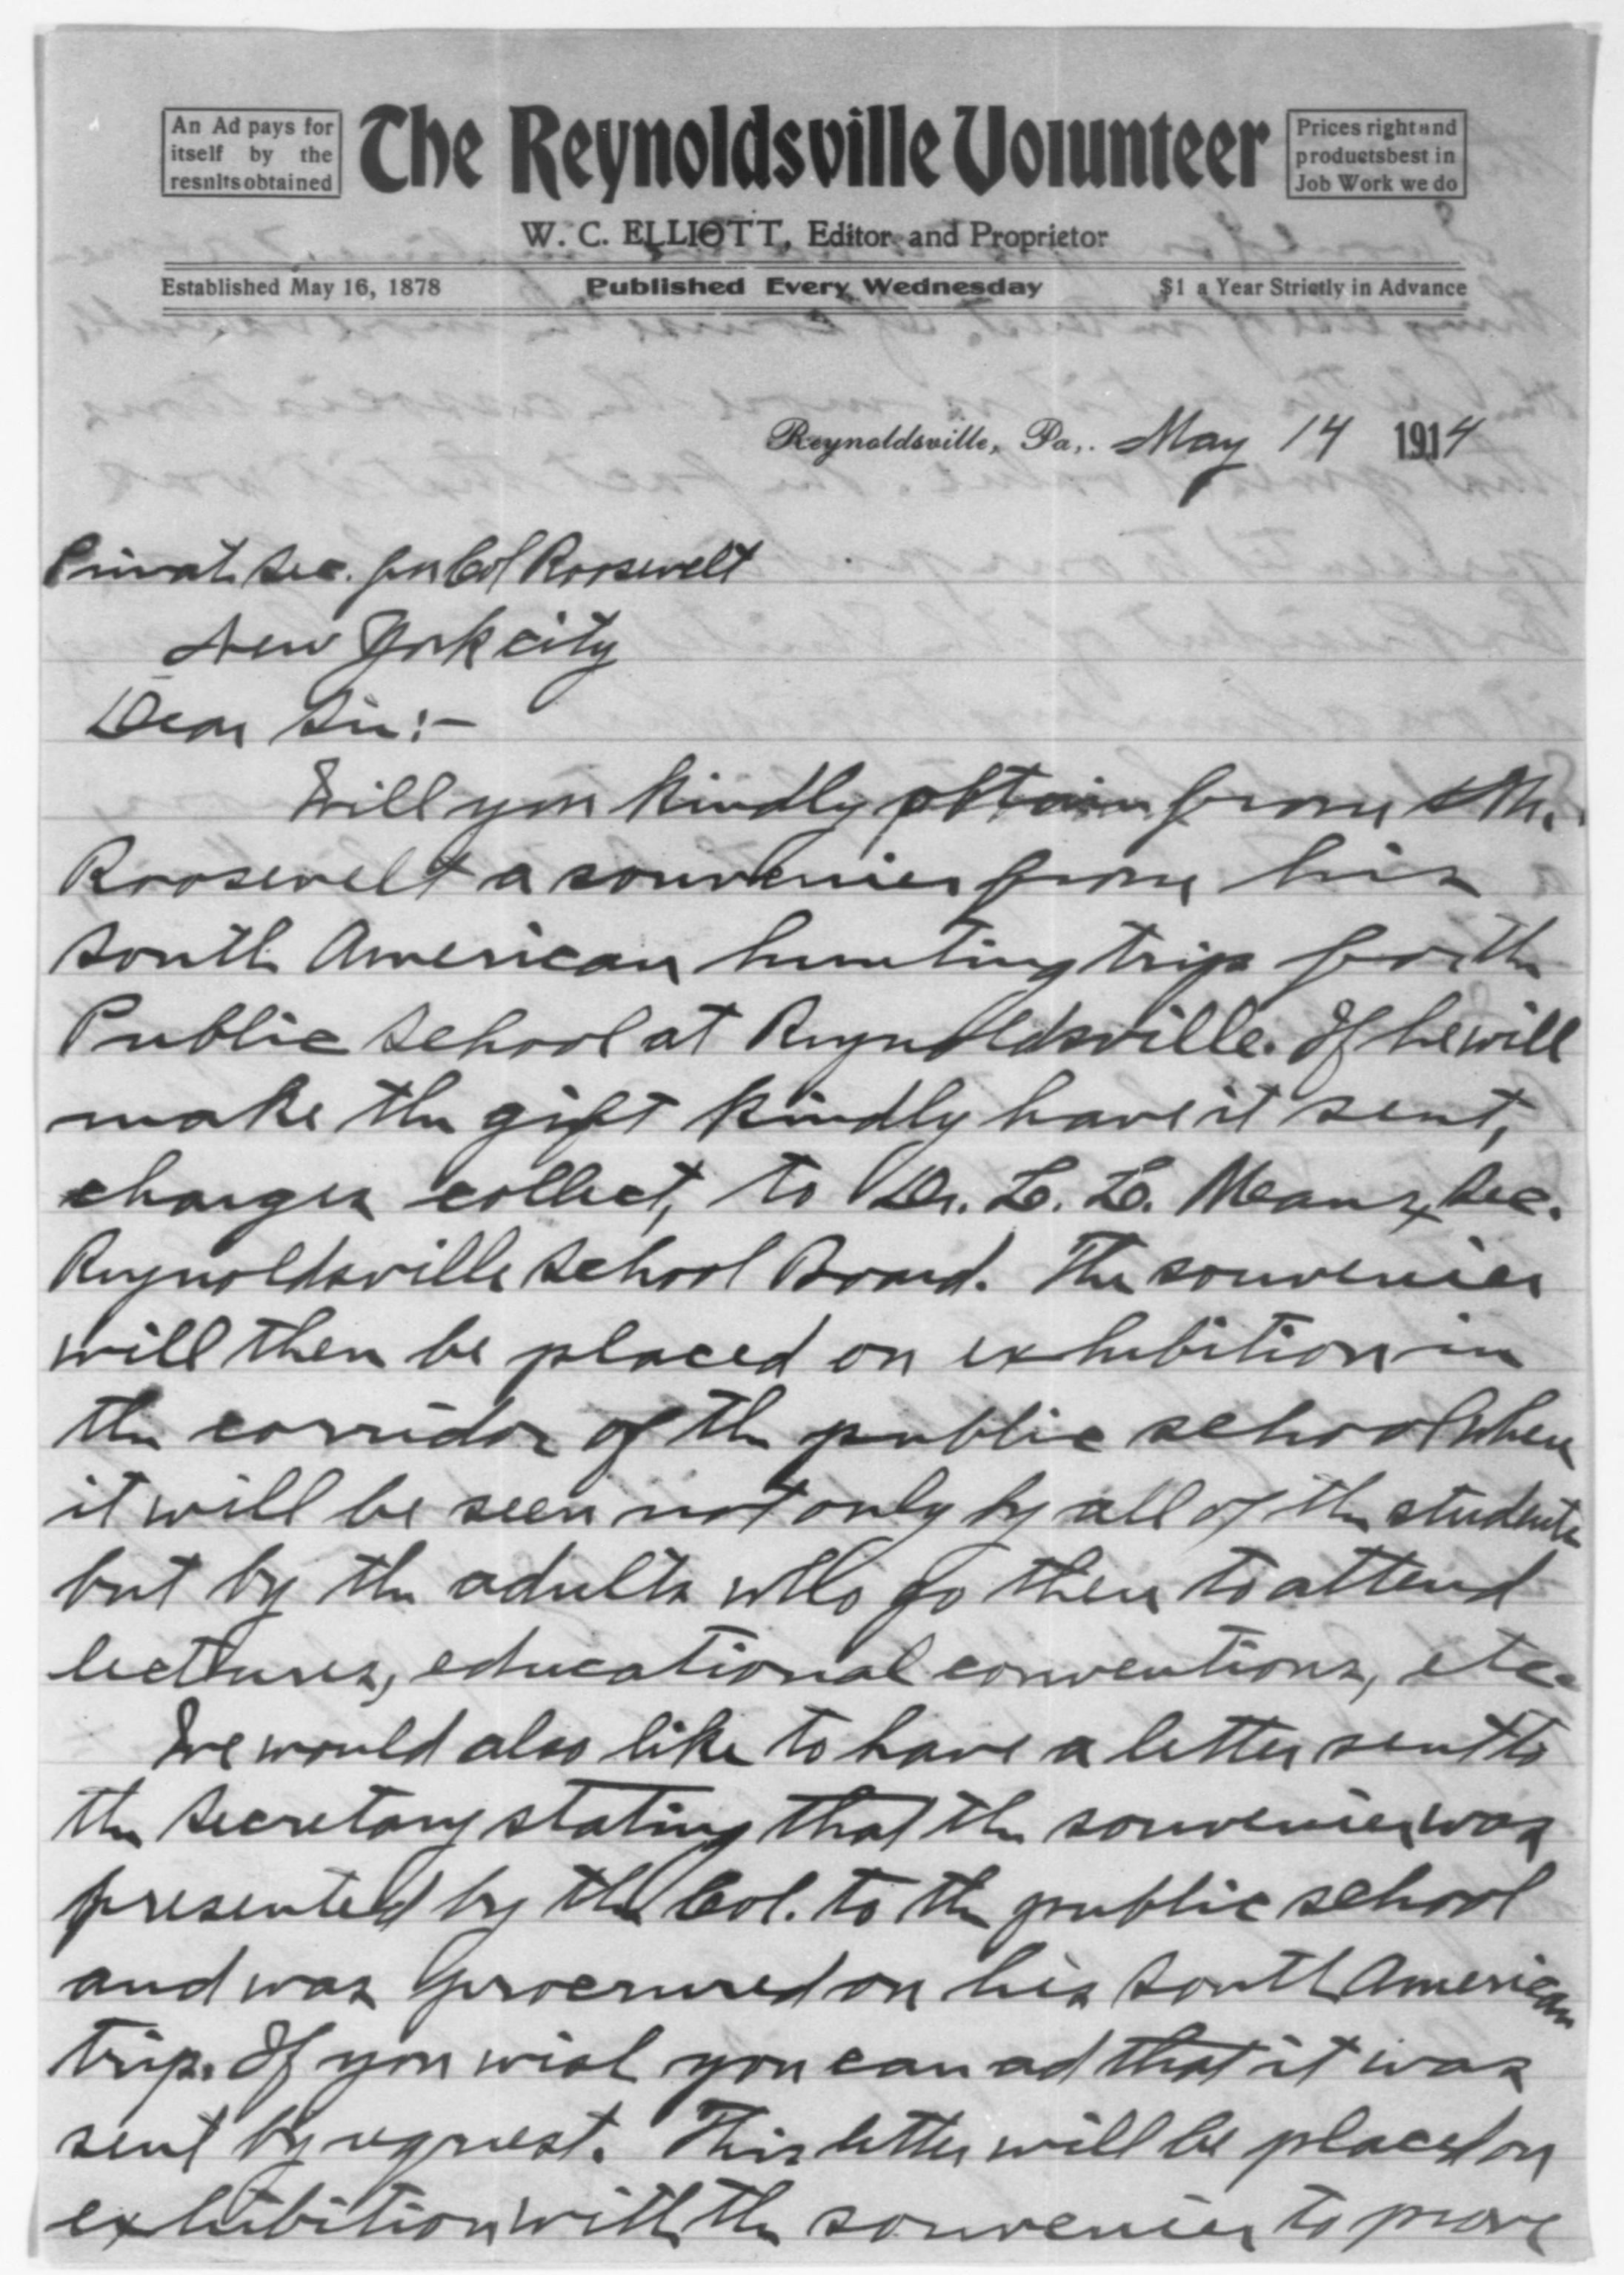 An Ad pays for
itself by the
results obtained
The Reynoldsville Volunteer
Prices right and
products best in
Job Work we do
W. C. ELLIOTT, Editor and Proprietor
Established May 16, 1878
Published Every Wednesday
$1 a Year Strictly in Advance
Reynoldsville, Pa,. May 14 1914
Privat Sec. for Col Roosevelt
New York city
Dear Sir:-
Will you kindly obtain from Mr.
Roosevelt a souvenier from his
South American hunting trip for the
Public School at Reynoldsville. If he will
make the gift kindly have it sent,
charges collect, to Dr. L. L. Means, Sec.
Reynoldsville School Board. The souvenier
will then be placed on exhibition in
the corridor of the public school when
it will be seen not only by all of the students
but by the adults who go there to attend
lectures, educational conventions, etc.
We would also like to have a letter sent to
the Secretary stating that the souvenier was
presented by the Col. to the public school
and was procurred on his South American
trip. If you wish you can ad that it was
sent by request. This letter will be placed on
exhibition with the souvenier to prove